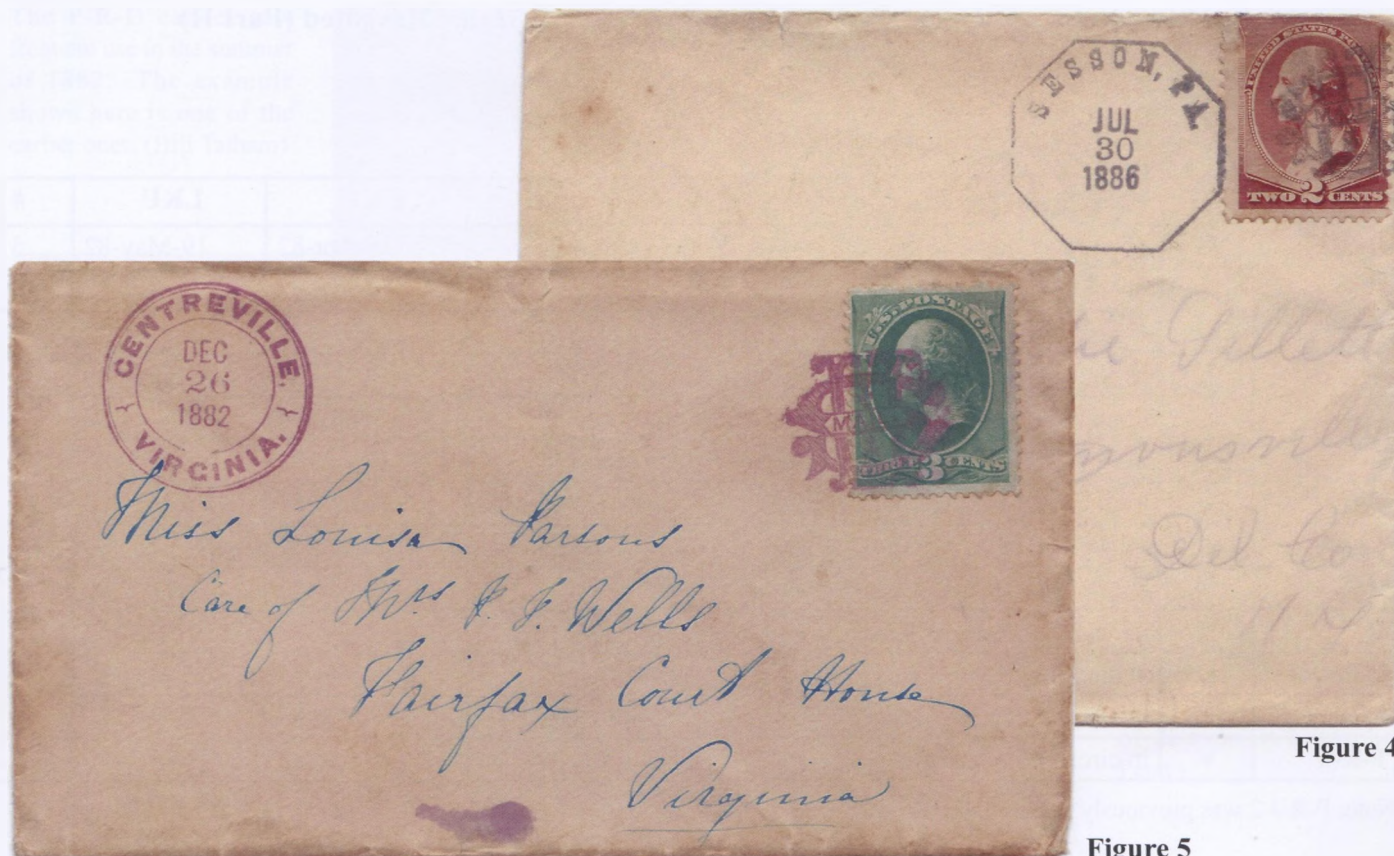 SESSON, PA.
JUL
30
1886
UNITED STATES POSTAGE
TWO 2 CENTS
Del Co
N.Y.
Figure 4
CENTREVILLE,
DEC
26
1882
VIRGINIA.
U.S. POSTAGE
THREE 3 CENTS
Miss Louisa Parsons
Care of Mrs P. F. Wells
Fairfax Court House
Virginia
Figure 5